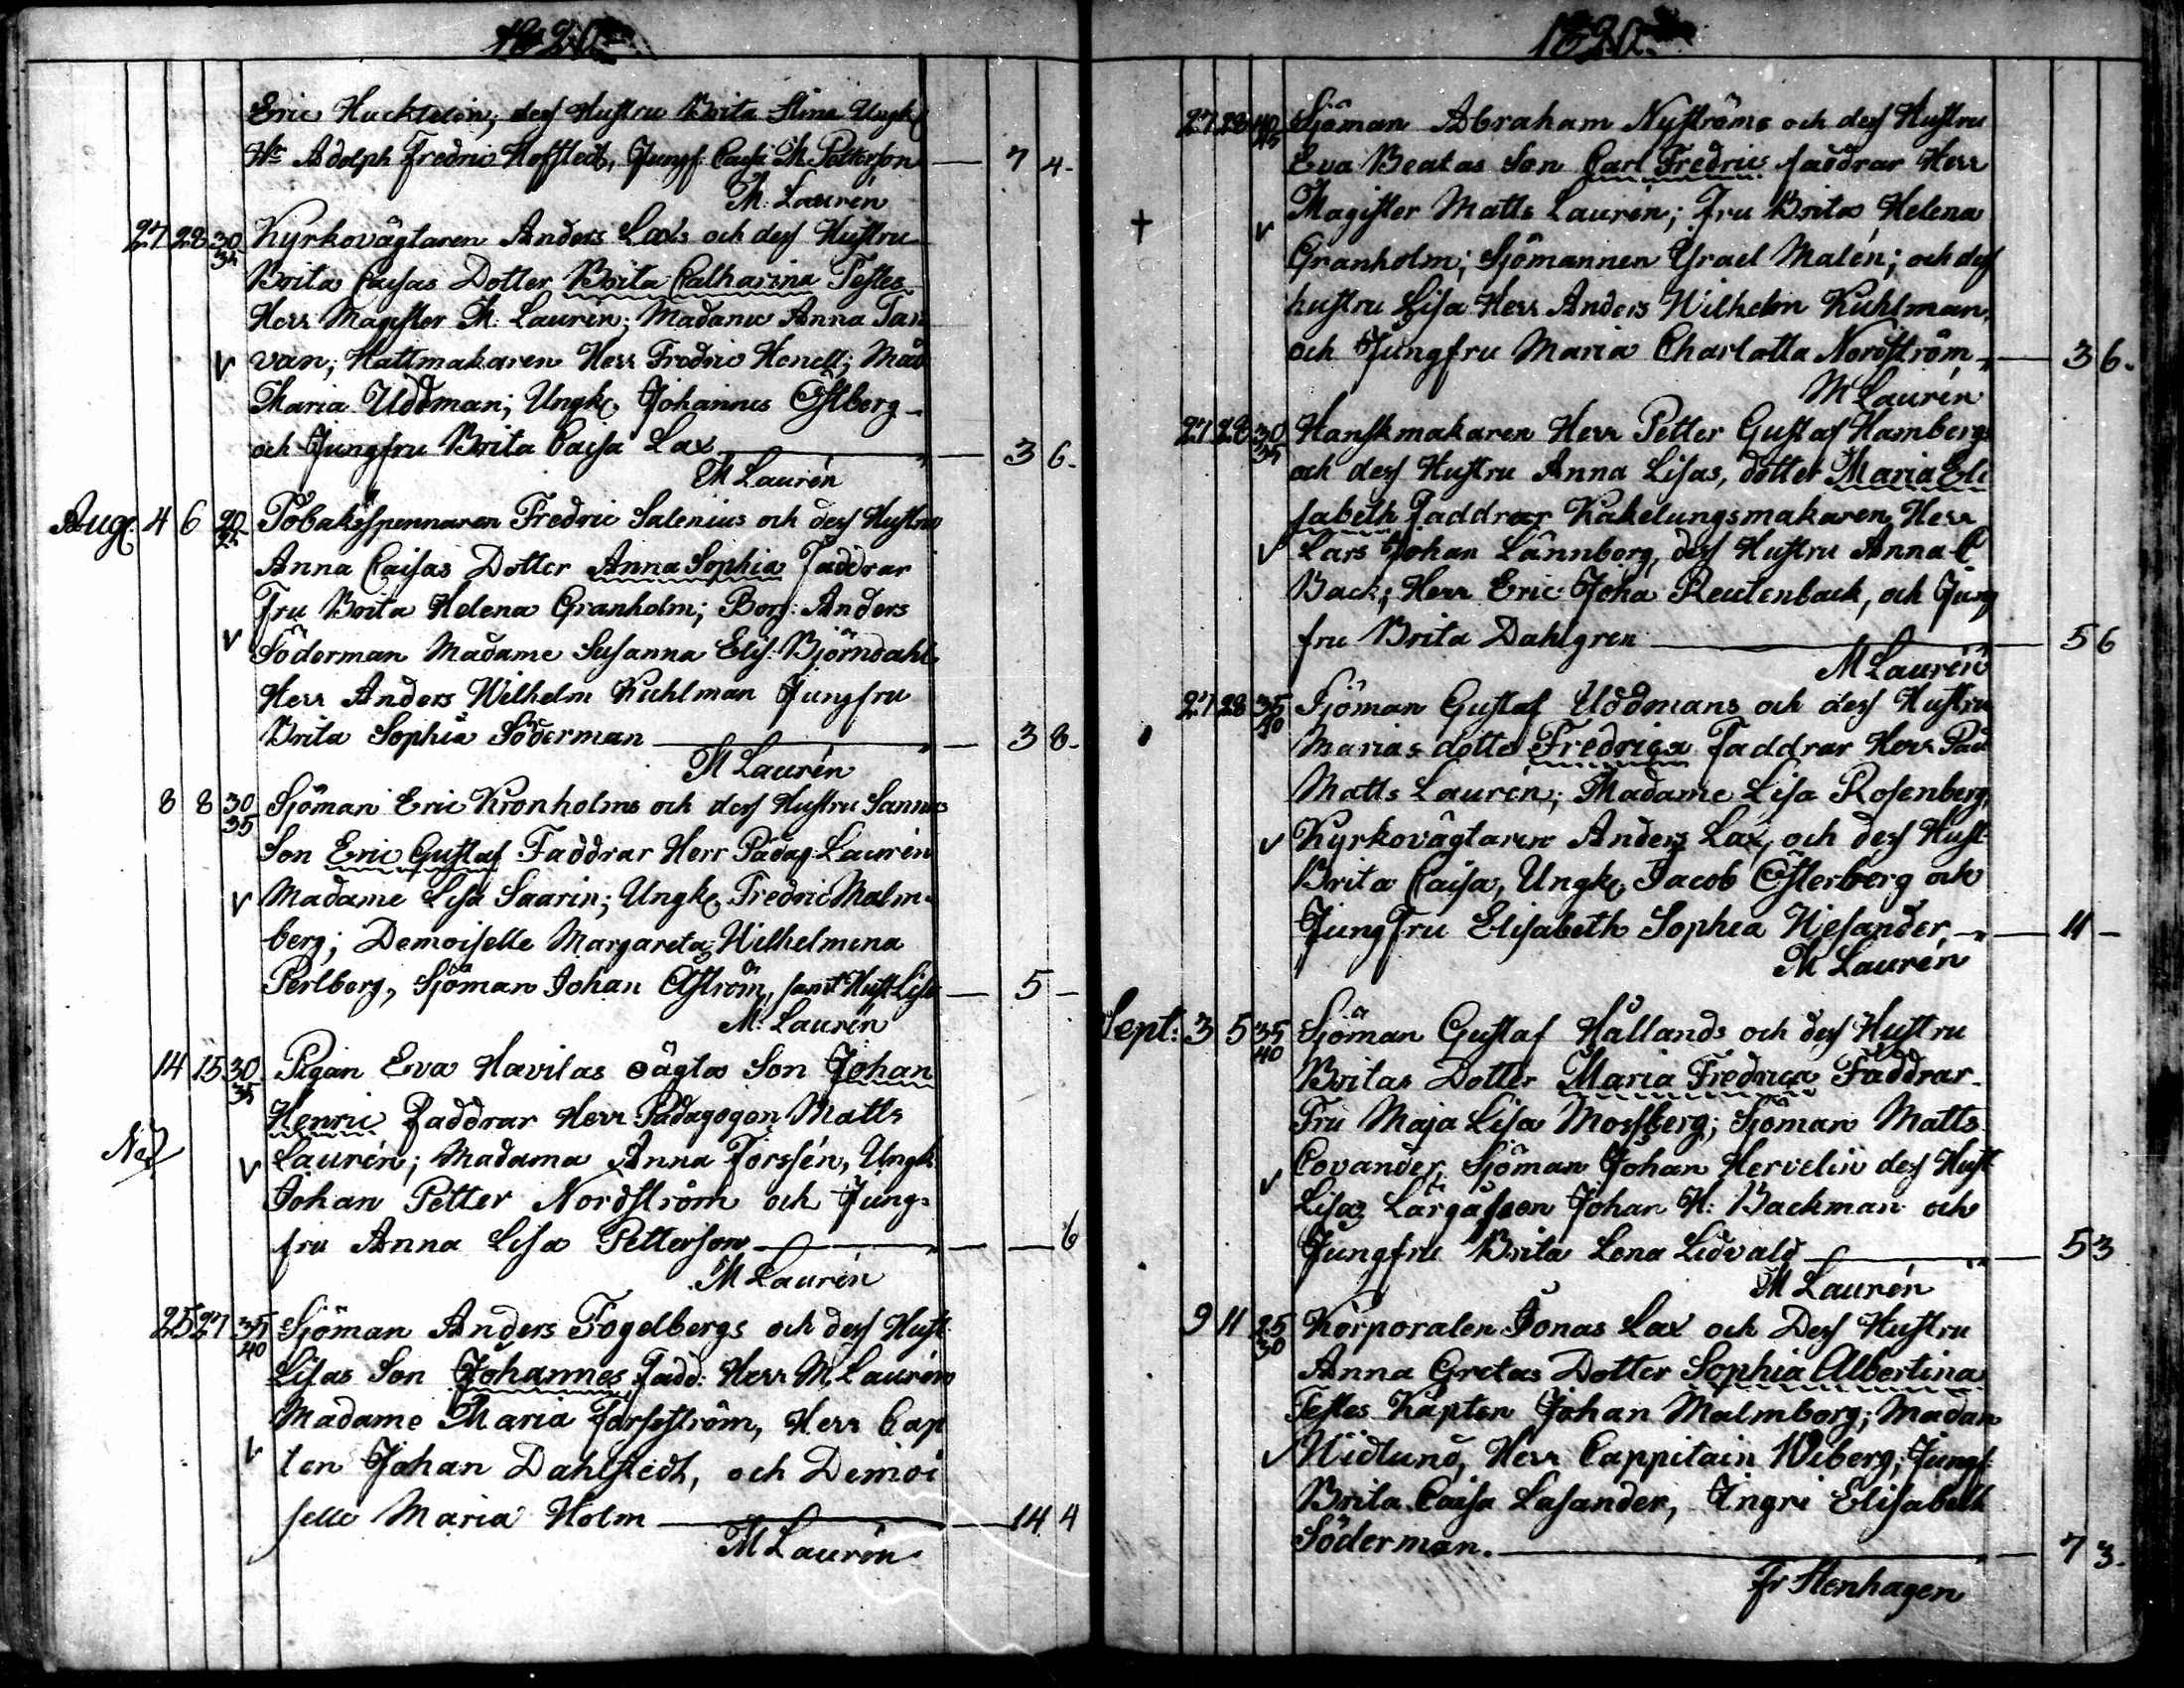 1820
Eric Hucktelin; dess Hustru Brita Stina Ungk.
Hr Adolph Fredric Hofstedt, Jungf. Caisa M. Petterson — 7 4.
M. Laurén
27 28 30 35 Kyrkovägtaren Anders Laxs och dess Hustru
Brita Caisas Dotter Brita Catharina Testes
Herr Magister M. Laurén; Madame Anna Tar
van; Hattmakaren Herr Fredric Henell; Mad
Maria Uddman; Ungk. Johannes Östberg
och Jungfru Brita Caisa Lax — 3 6.
M Laurén
Aug. 4 6 20 25 Tobaksspennaren Fredric Salenius och dess Hustru
Anna Caisas Dotter Anna Sophia Faddrar
Fru Brita Helena Granholm; Borg: Anders
Söderman Madame Susanna Elis. Björndahl
Herr Anders Wilhelm Kuhlman Jungfru
Brita Sophia Söderman — 3 8.
M Laurén
8 8 30 35 Sjöman Eric Kronholms och dess Hustru Sannas
Son Eric Gustaf Faddrar Herr Pädag. Laurén
Madame Lisa Saarin; Ungk. Fredric Malm-
berg; Demoiselle Margareta Wilhelmina
Perlberg, Sjöman Johan Åström, samt Hust Lisa — 5 —
M. Laurén
14 15 30 35 Pigan Eva Hævitas oägta Son Johan
Henric Faddrar Herr Pädagogen Matts
Laurén; Madama Anna Forssén, Ungk.
Johan Petter Nordström och Jung-
fru Anna Lisa Petterson — 6
M Laurén
25 27 35 40 Sjöman Anders Fogelbergs och dess Hust.
Lisas Son Johannes Fadd: Herr M. Laurén
Madame Maria Forsström, Herr Cap
ten Johan Dahlstedt, och Demoi
selle Maria Holm — 14 4
M Laurén
1820.
27 28 40 45 Sjöman Abraham Nyströms och dess Hustru
Eva Beatas Son Carl Fredric faddrar Herr
† Magister Matts Laurén; Fru Brita Helena
Granholm; Sjömannen Israel Malén; och dess
hustru Lisa Herr Anders Wilhelm Kuhlman,
och Jungfru Maria Charlotta Nordström — 3 6.
M Laurén
27 28 30 35 Hanskmakaren Herr Petter Gustaf Hambergs
och dess Hustru Anna Lisas, dotter Maria Eli
sabeth Faddrar Kakelungsmakaren Herr
Lars Johan Lännberg, dess Hustru Anna C
Back; Herr Eric Joha Reutenback, och Jung
fru Brita Dahlgren — 5 6
M Laurén
27 28 35 40 Sjöman Gustaf Uddmans och dess Hustru
Marias dotter Fredrica Faddrar Herr Päd
Matts Laurén; Madame Lisa Rosenberg,
Kyrkovägtaren Anders Lax, och dess Hust
Brita Caisa, Ungk. Jacob Österberg och
Jungfru Elisabeth Sophia Wesander — 11 —
M Laurén
Sept: 3 5 35 40 Sjöman Gustaf Hållands och dess Hustru
Britas Dotter Maria Fredrica Faddrar
Fru Maja Lisa Mossberg; Sjöman Matts
Covander, Sjöman Johan Hervelin dess Hust
Lisa, Johan H: Backman och
Jungfru Brita Lena Lidvald — 5 3
M Laurén
9 11 25 30 Korporalen Jonas Lax och Dess Hustru
Anna Gretas Dotter Sophia Albertina
Testes Kapten Johan Malmborg; Madam
Widlund, Herr Cappitain Wiberg, Jungf.
Brita Caisa Lasander, Ingri Elisabeth
Söderman. — 7 3.
Fr Stenhagen